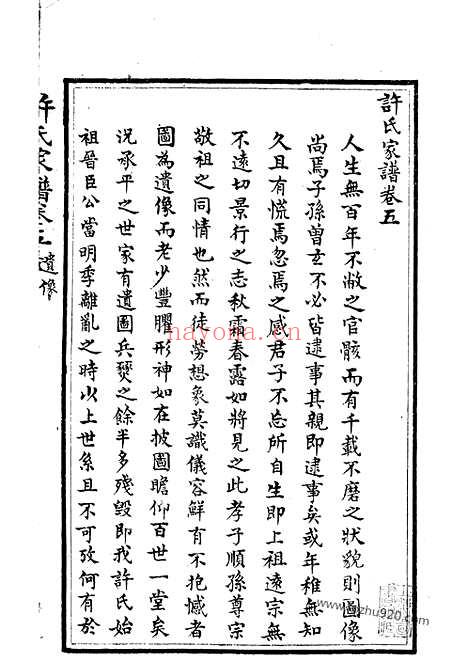 許氏家譜卷五
人生無百年不敝之官骸而有千載不磨之狀貌則圖像
尚焉子孫曾玄不必皆逮事其親即逮事矣或年稚無知
久且有慌焉忽焉之感君子不忘所自生即上祖遠宗無
不遠切景行之志秋霜春露如將見之此孝子順孫尊宗
敬祖之同情也然而徒勞想象莫識儀容鮮有不抱憾者
圖為遺像而老少豐臞形神如在披圖瞻仰百世一堂矣
況承平之世家有遺圖兵燹之餘半多殘毀即我許氏始
祖晉臣公當明季離亂之時以上世系且不可攷何有於
許氏家譜卷五 遺像
nayona.cn
www.zhu920.com